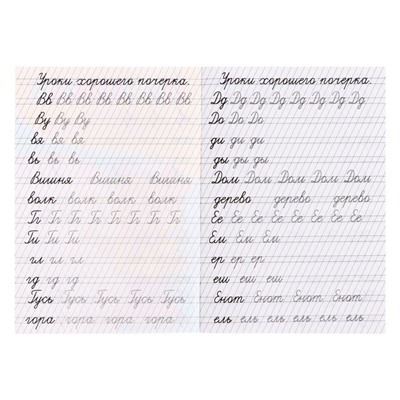 Уроки хорошего почерка.
Вв Вв Вв Вв Вв Вв Вв Вв
Ву Ву Ву
вя вя вя
вь вь вь
Вишня Вишня Вишня
волк волк волк волк
Гг Гг Гг Гг Гг Гг Гг Гг
Ги Ги Ги
гл гл гл
гд гд гд
Гусь Гусь Гусь Гусь Гусь
гора гора гора гора
Уроки хорошего почерка.
Дд Дд Дд Дд Дд Дд Дд
До До До
ди ди ди
ды ды ды
Дом Дом Дом Дом Дом
дерево дерево дерево
Ее Ее Ее Ее Ее Ее Ее
Ем Ем Ем
ер ер ер
еш еш еш
Енот Енот Енот Енот
ель ель ель ель ель ель